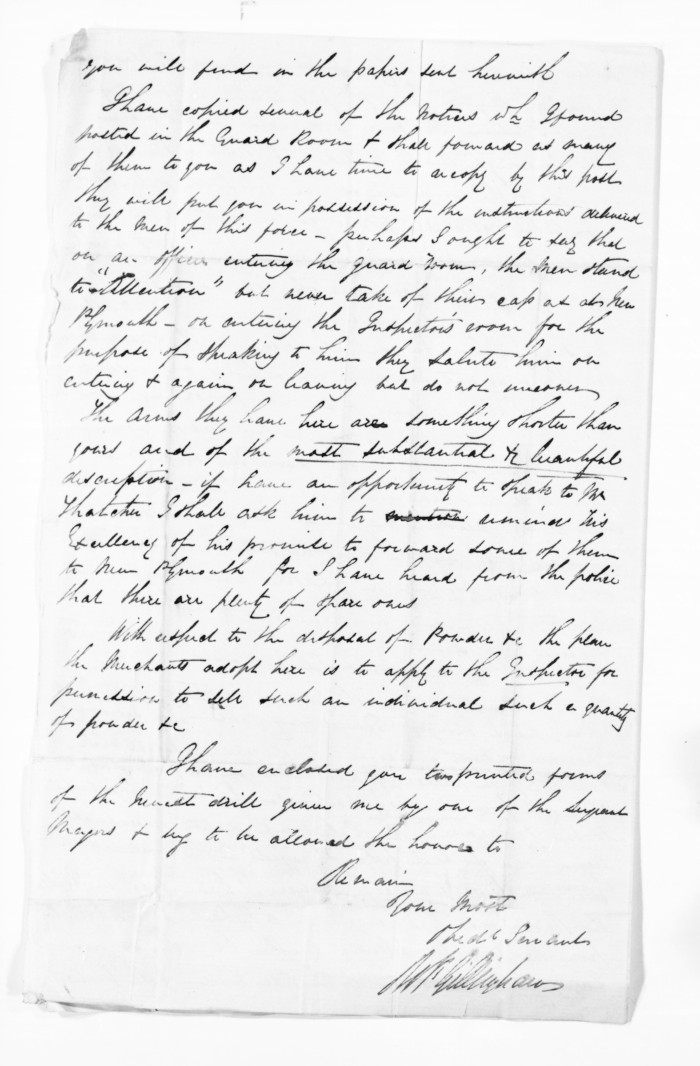 you will find in the papers sent herewith
I have copied several of the Notices wh I found
posted in the Guard Room & shall forward as many
of them to you as I have time to recopy by this post
they will put you in possession of the instructions delivered
to the Men of this force – perhaps I ought to say that
on an officer entering the guard room, the Men stand
to "Attention" but never take of their cap as at New
Plymouth – on entering the Inspector's room for the
purpose of speaking to him they salute him on
entering & again on leaving but do not uncover
The arms they have here are something shorter than
yours and of the most substantial & beautiful
description – if have an opportunity to speak to Mr
Thatcher I shall ask him to mention remind his
Excellency of his promise to forward some of them
to New Plymouth for I have heard from the police
that there are plenty of spare ones
With respect to the disposal of Powder &c the plan
the Merchants adopt here is to apply to the Inspector for
permission to sell such an individual such a quantity
of powder &c
I have enclosed you two printed forms
of the newest drill given me by one of the Sergeant
Majors & beg to be allowed the honor to
Remain
Your Most
Obedt Servant
Gillingham